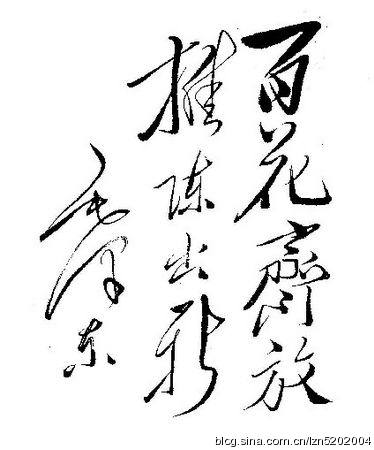 百花齊放
推陈出新
毛泽东
blog.sina.com.cn/lzn5202004